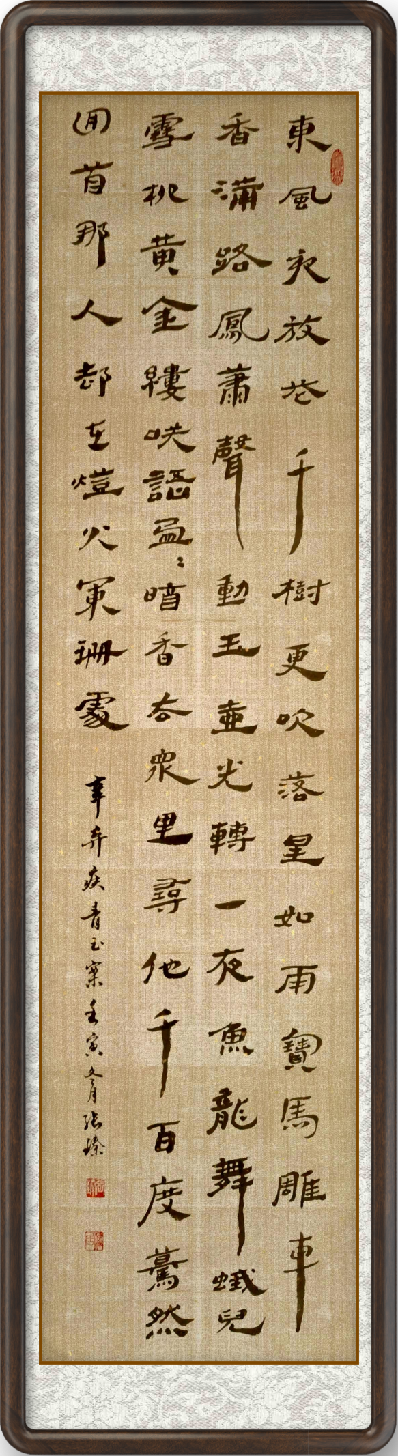 東風夜放花千樹更吹落星如雨寶馬雕車
香滿路鳳蕭聲動玉壺光轉一夜魚龍舞蛾兒
雪柳黃金縷咲語盈〻暗香去眾里尋他千百度驀然
回首那人却在燈火闌珊處
辛弃疾青玉案壬寅